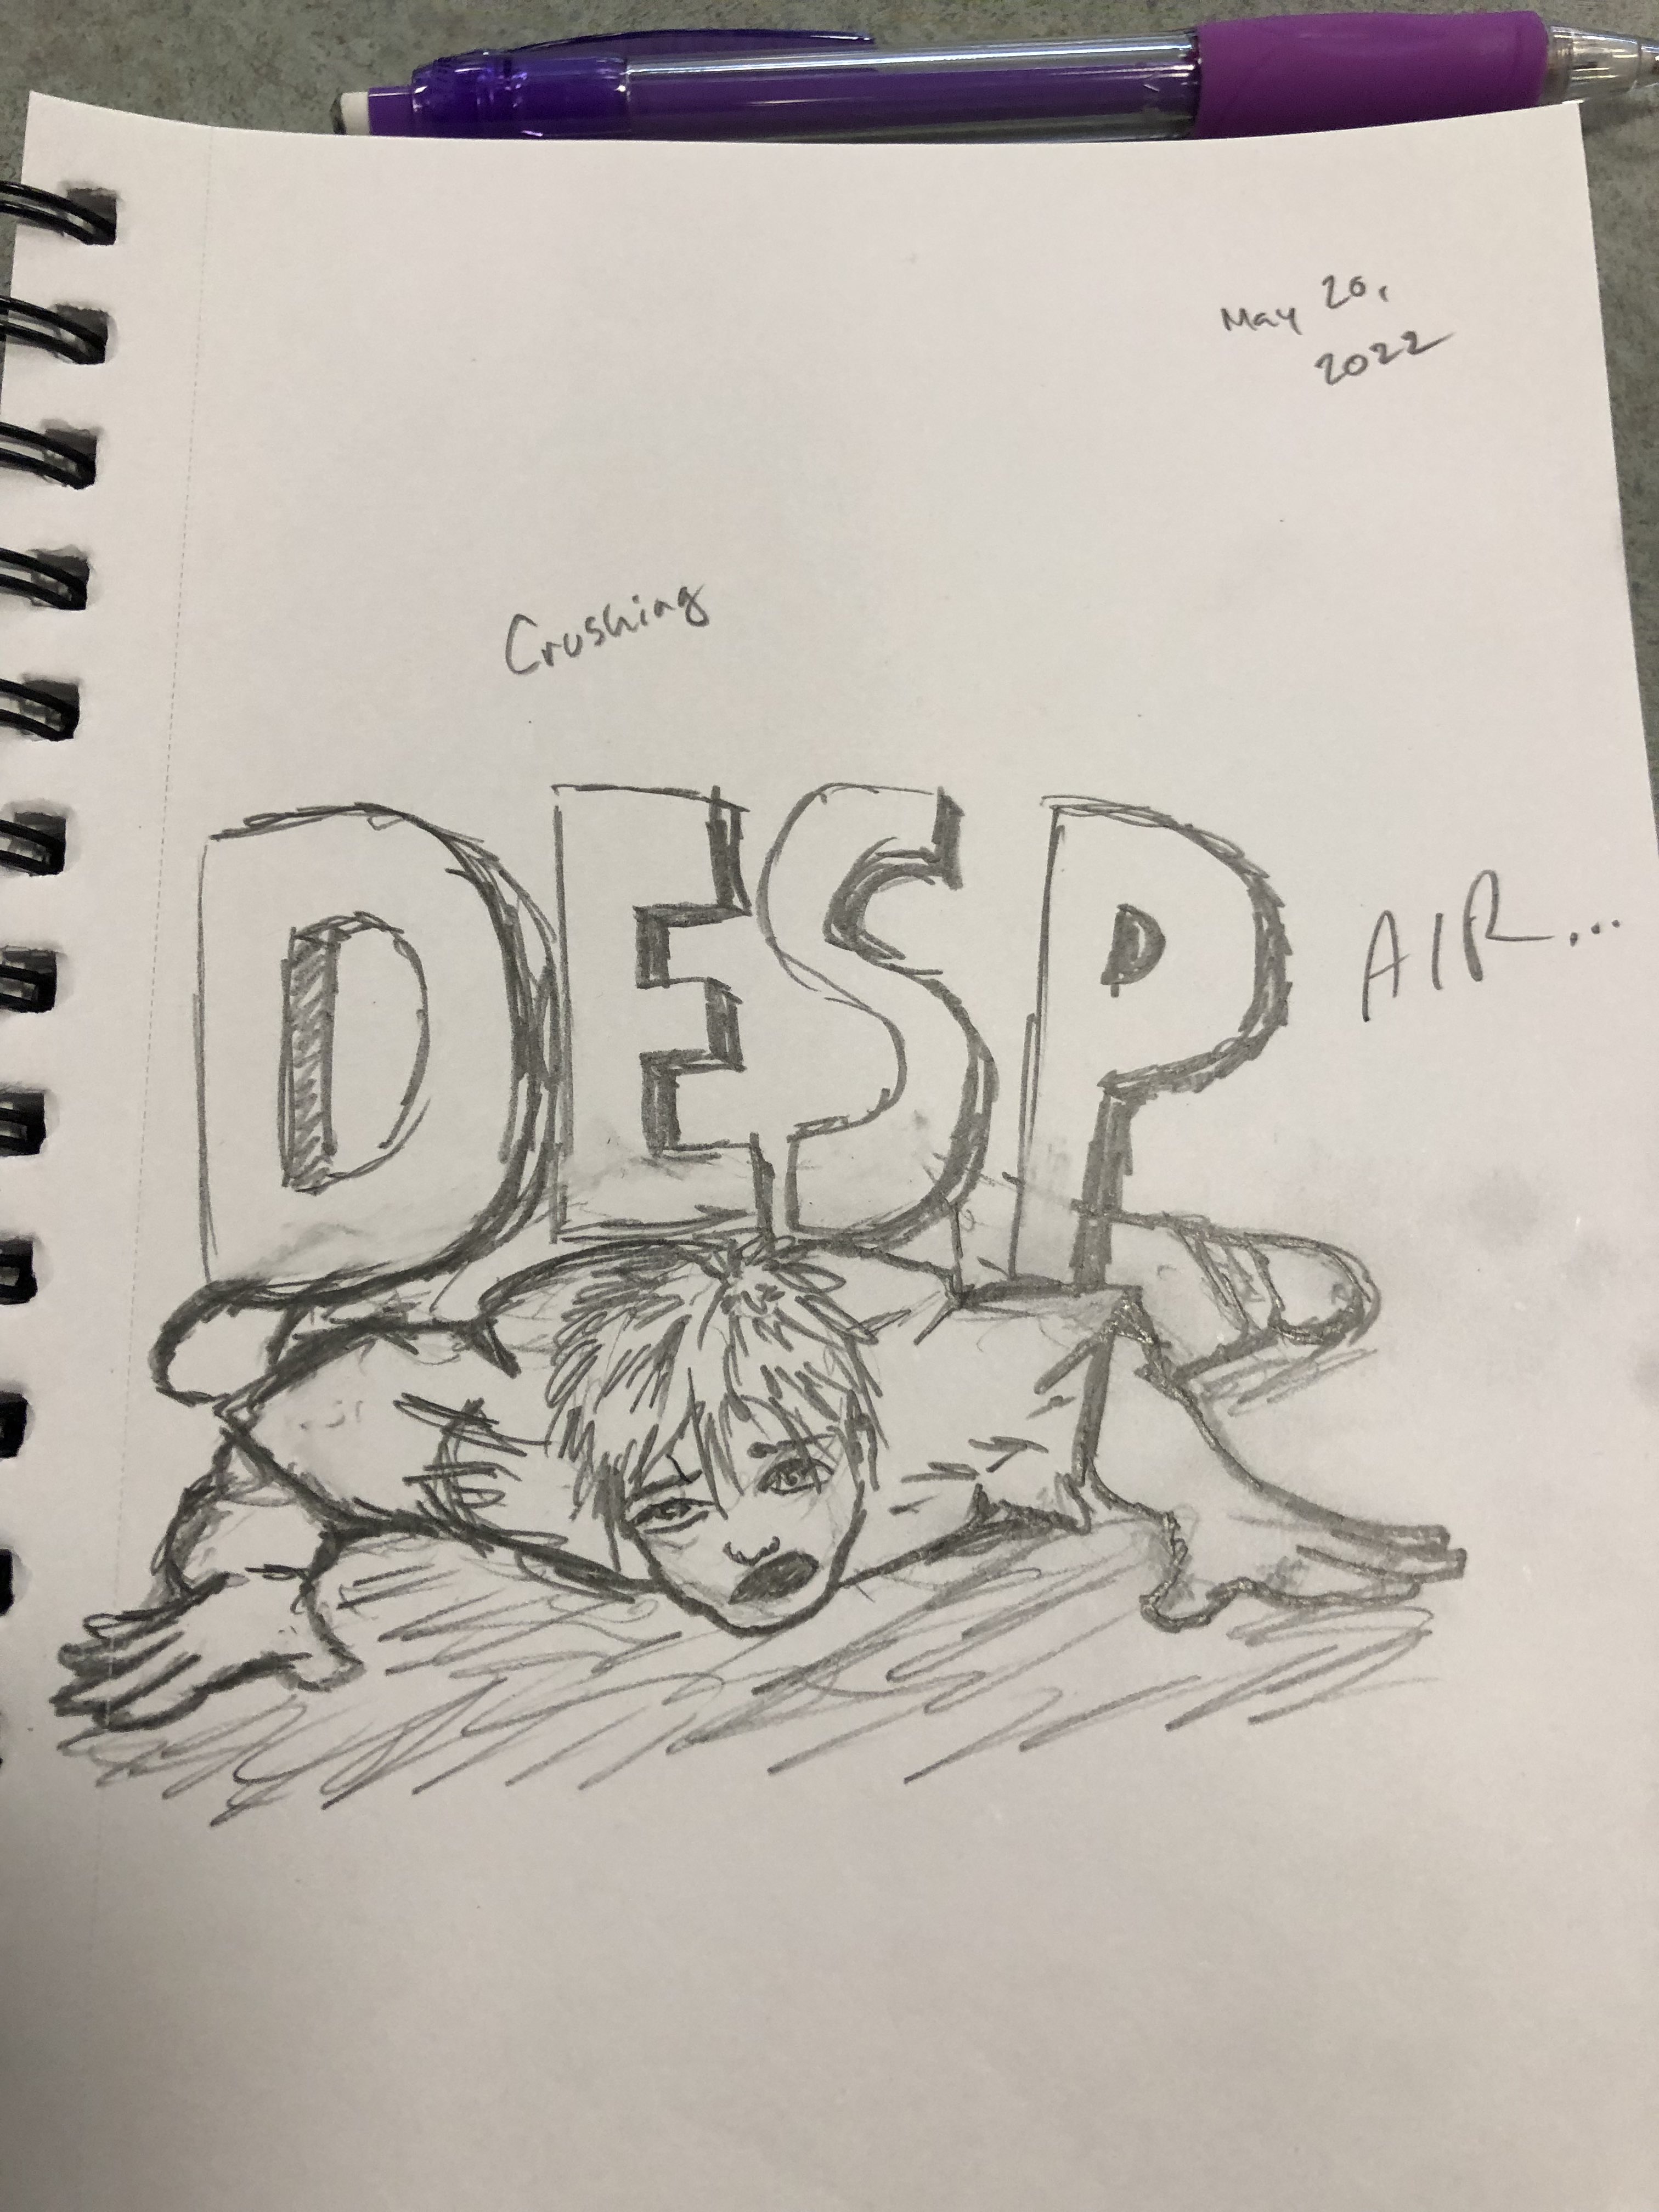 May 20,
2022
Crushing
DESP
AIR...